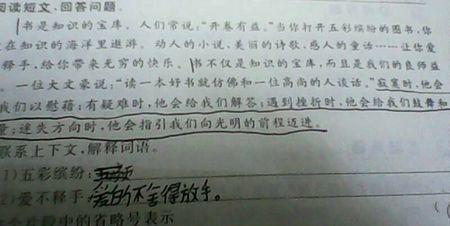 阅读短文,回答问题。
书是知识的宝库。人们常说:“开卷有益。”当你打开五彩缤纷的图书,你
在知识的海洋里遨游。动人的小说,美丽的诗歌,感人的童话……让你爱
释手,给你带来无穷的快乐。书不仅是知识的宝库,而且是我们的良师益
。一位大文豪说:“读一本好书就仿佛和一位高尚的人谈话。”寂寞时,他会
我们以慰藉;有疑难时,他会给我们解答;遇到挫折时,他会给我们鼓舞和
量;迷失方向时,他会指引我们向光明的前程迈进。
联系上下文,解释词语。
(1)五彩缤纷:
(2)爱不释手:爱的不舍得放手。
个片段中的省略号表示